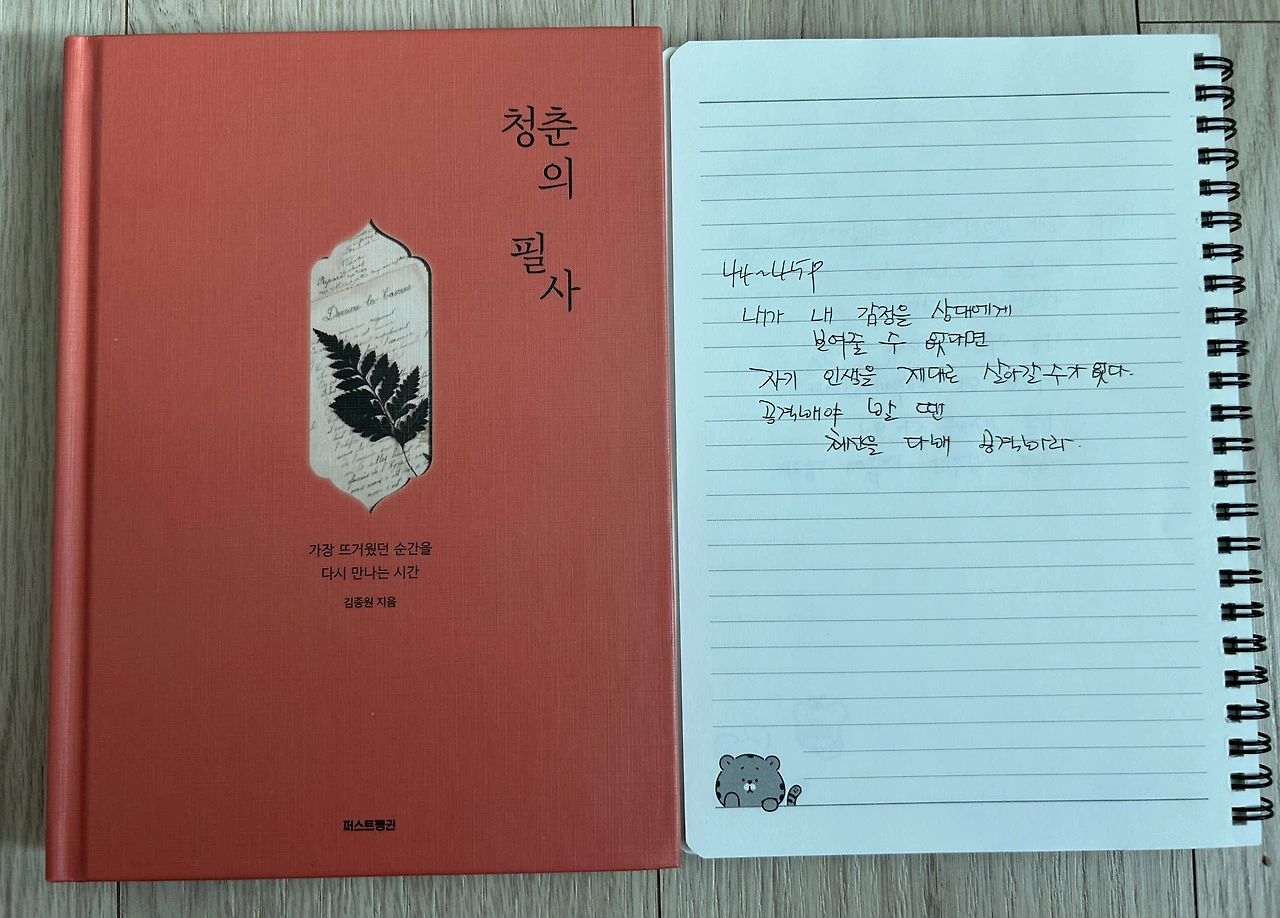 청춘
의
필
사
Derrière les Cartes
가장 뜨거웠던 순간을
다시 만나는 시간
김종원 지음
퍼스트펭귄
44~45P
내가 내 감정을 상대에게
보여줄 수 없다면
자기 인생을 제대로 살아갈 수가 없다.
공격해야 할 땐
최선을 다해 공격하라.